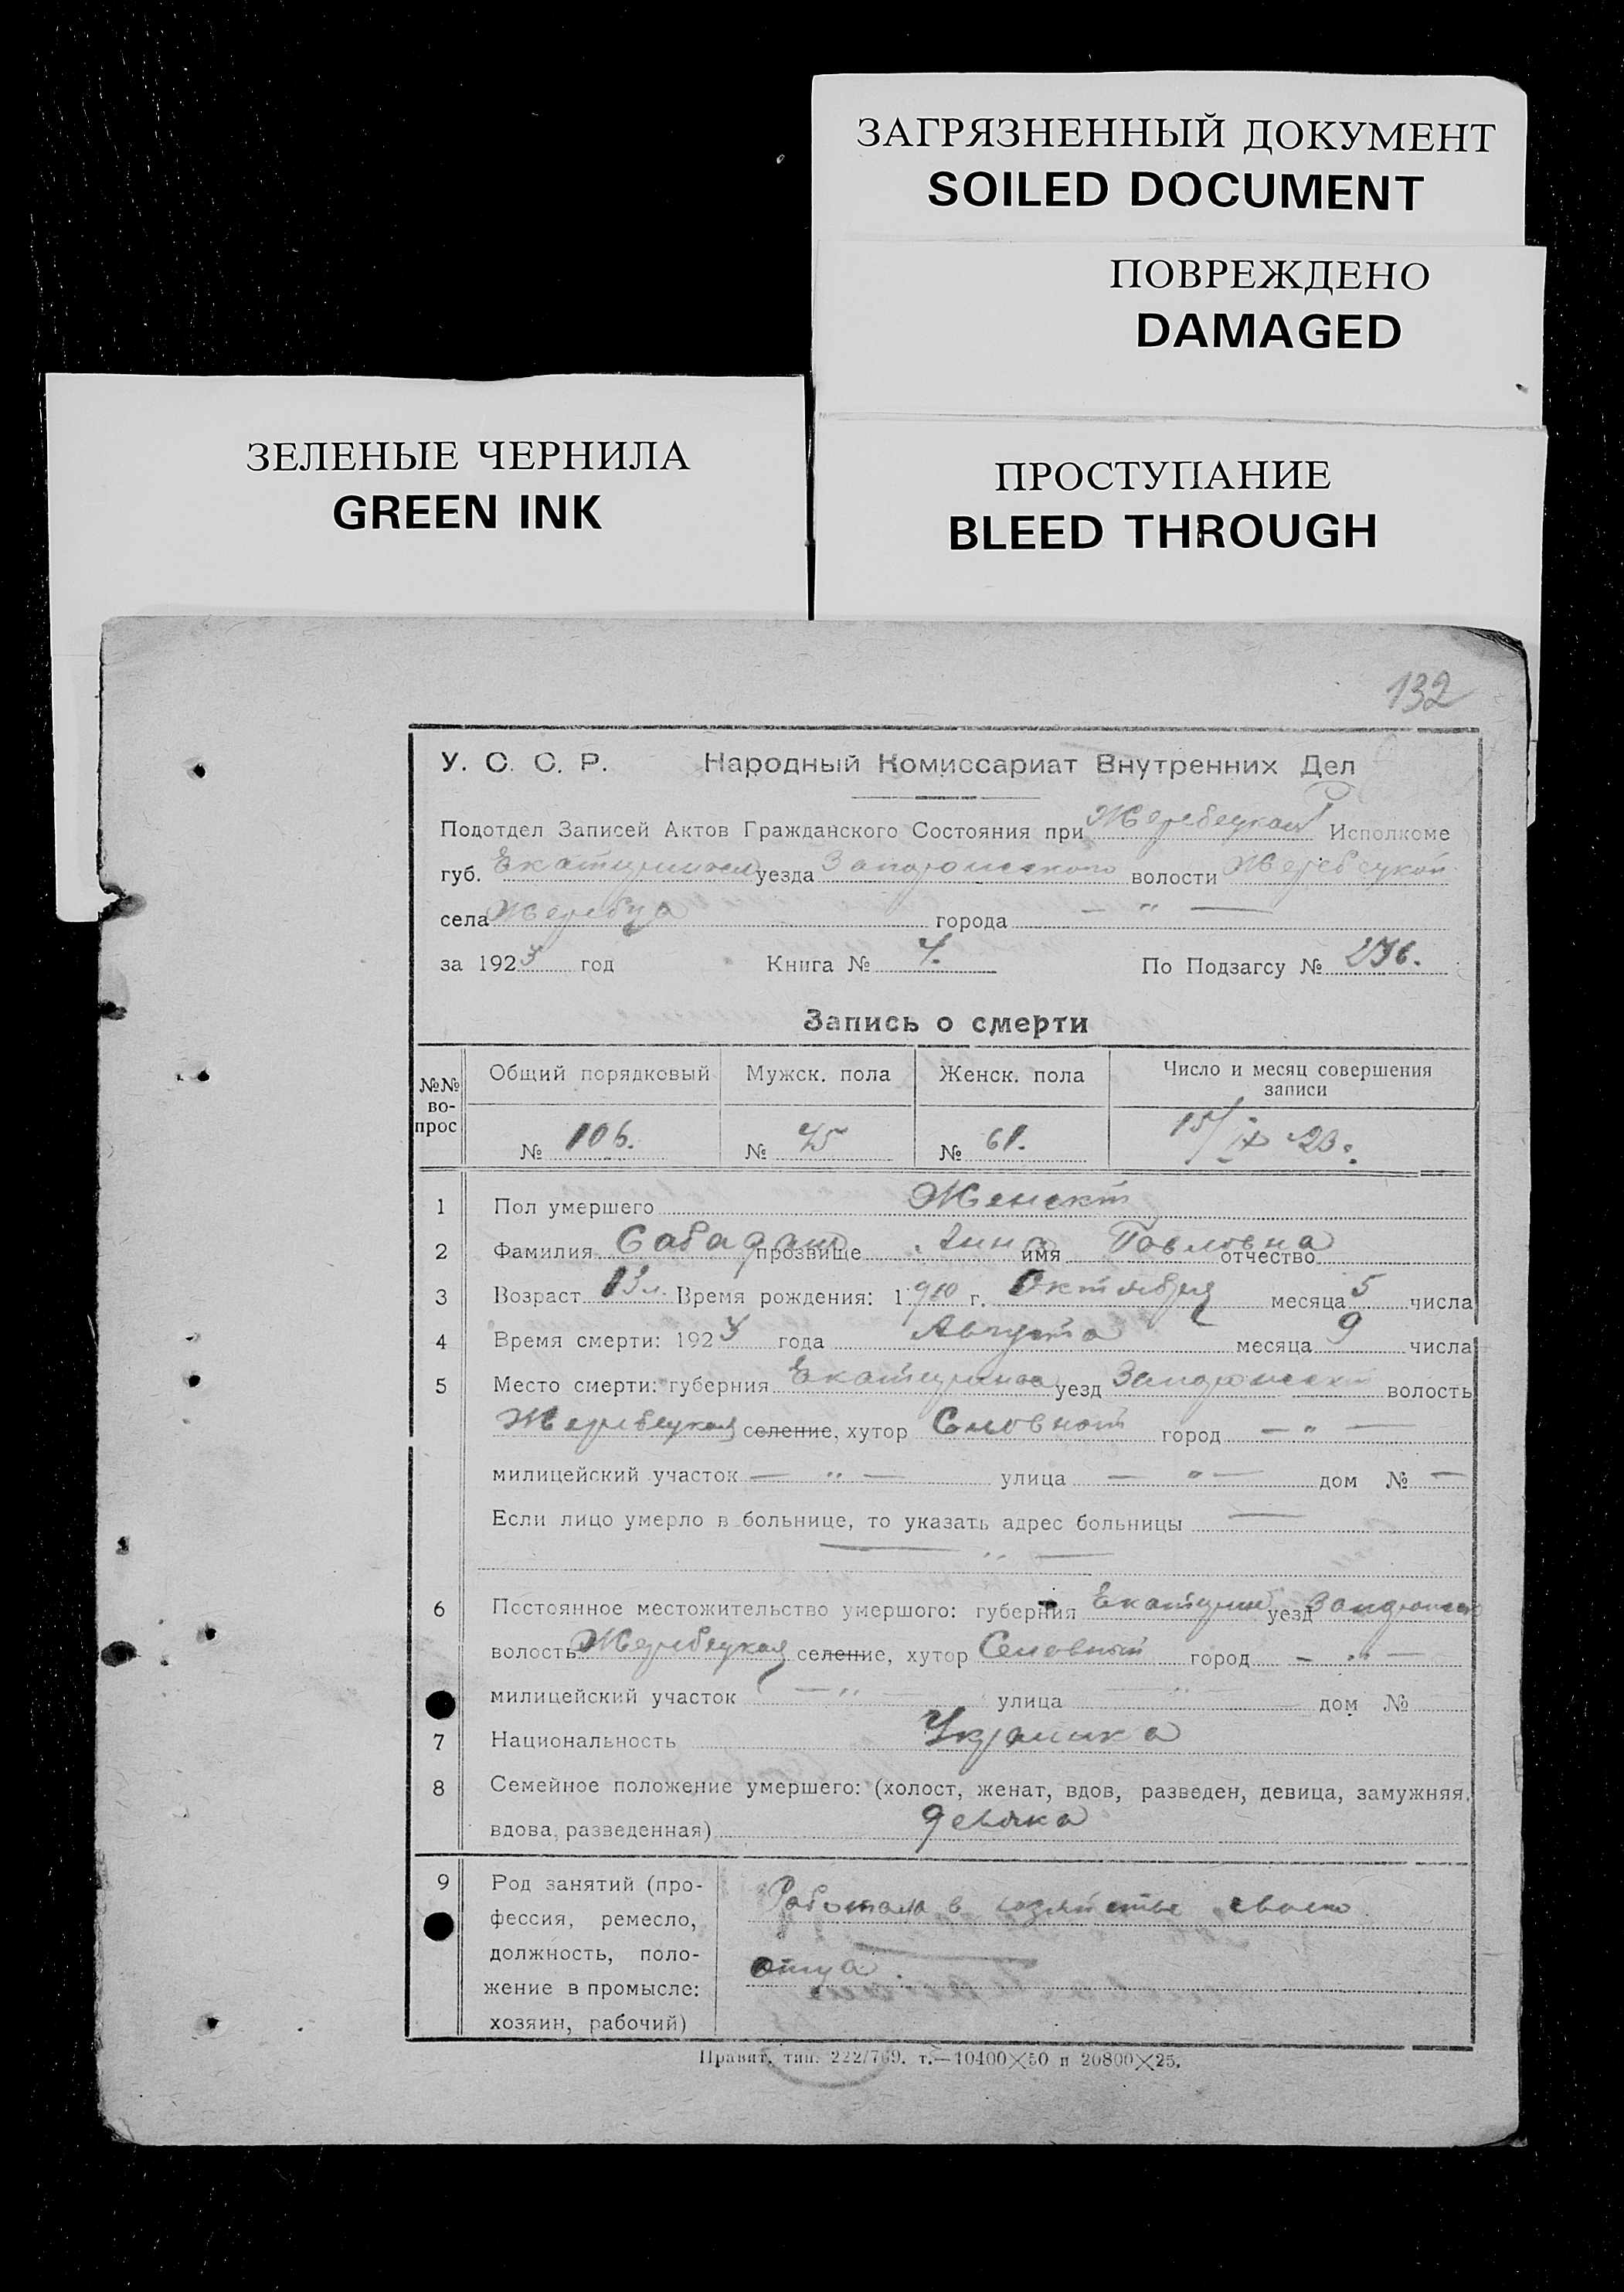 ЗАГРЯЗНЕННЫЙ ДОКУМЕНТ
SOILED DOCUMENT
ПОВРЕЖДЕНО
DAMAGED
ЗЕЛЕНЫЕ ЧЕРНИЛА
GREEN INK
ПРОСТУПАНИЕ
BLEED THROUGH
132
У. С. С. Р. Народный Комиссариат Внутренних Дел
Подотдел Записей Актов Гражданского Состояния при Жеребецком Исполкоме
губ. Екатеринослав уезда Запорожского волости Жеребецкой
села Жеребца города — " —
за 1923 год Книга № 4. По Подзагсу №
Запись о смерти
№№ вопрос Общий порядковый Мужск. пола Женск. пола Число и месяц совершения записи
№ 106. № 45 № 61. 15/IX 23.
1 Пол умершего Женский
2 Фамилия Сабадаш прозвище Анна имя Павловна отчество
3 Возраст 13 л. Время рождения: 1910 г. Октября месяца 5 числа
4 Время смерти: 1923 года Августа месяца 9 числа
5 Место смерти: губерния Екатеринос уезд Запорожск волость
Жеребецкая селение, хутор город — " —
милицейский участок — " — улица — " — дом № —
Если лицо умерло в больнице, то указать адрес больницы —
— " —
6 Постоянное местожительство умершого: губерния Екатерин уезд Запорожск
волость Жеребецкая селение, хутор город — " —
милицейский участок — " — улица — " — дом №
7 Национальность Украинка
8 Семейное положение умершего: (холост, женат, вдов, разведен, девица, замужняя,
вдова, разведенная) девочка
9 Род занятий (про-
фессия, ремесло, Работала в хозяйстве своего
должность, поло-
жение в промысле: отца.
хозяин, рабочий)
Правит. тип. 222/769. т.—10400×50 и 20800×25.